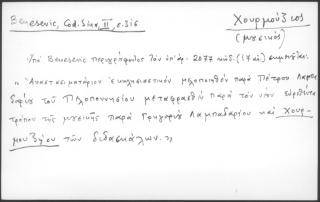 Benesevic, Cod. Sinx, II, σ. 316
Χουρμούζιος
(μουσικός)
Ὑπὸ Benesevic περιγράφονται τὸν ὑπ' ἀρ. 2077 κώδ. (17 αἰ)
« Ἀναστασιματάριον Ἐκκλησιαστικὸν μελοποιηθὲν παρὰ Πέτρου Λαμπα
δαρίου τοῦ Πελοποννησίου μεταφρασθὲν παρὰ τὸν νέον εὑρεθέντα
τρόπον τῆς μουσικῆς παρὰ Γρηγορίου Λαμπαδαρίου καὶ Χουρ-
μουζίου τῶν διδασκάλων. »